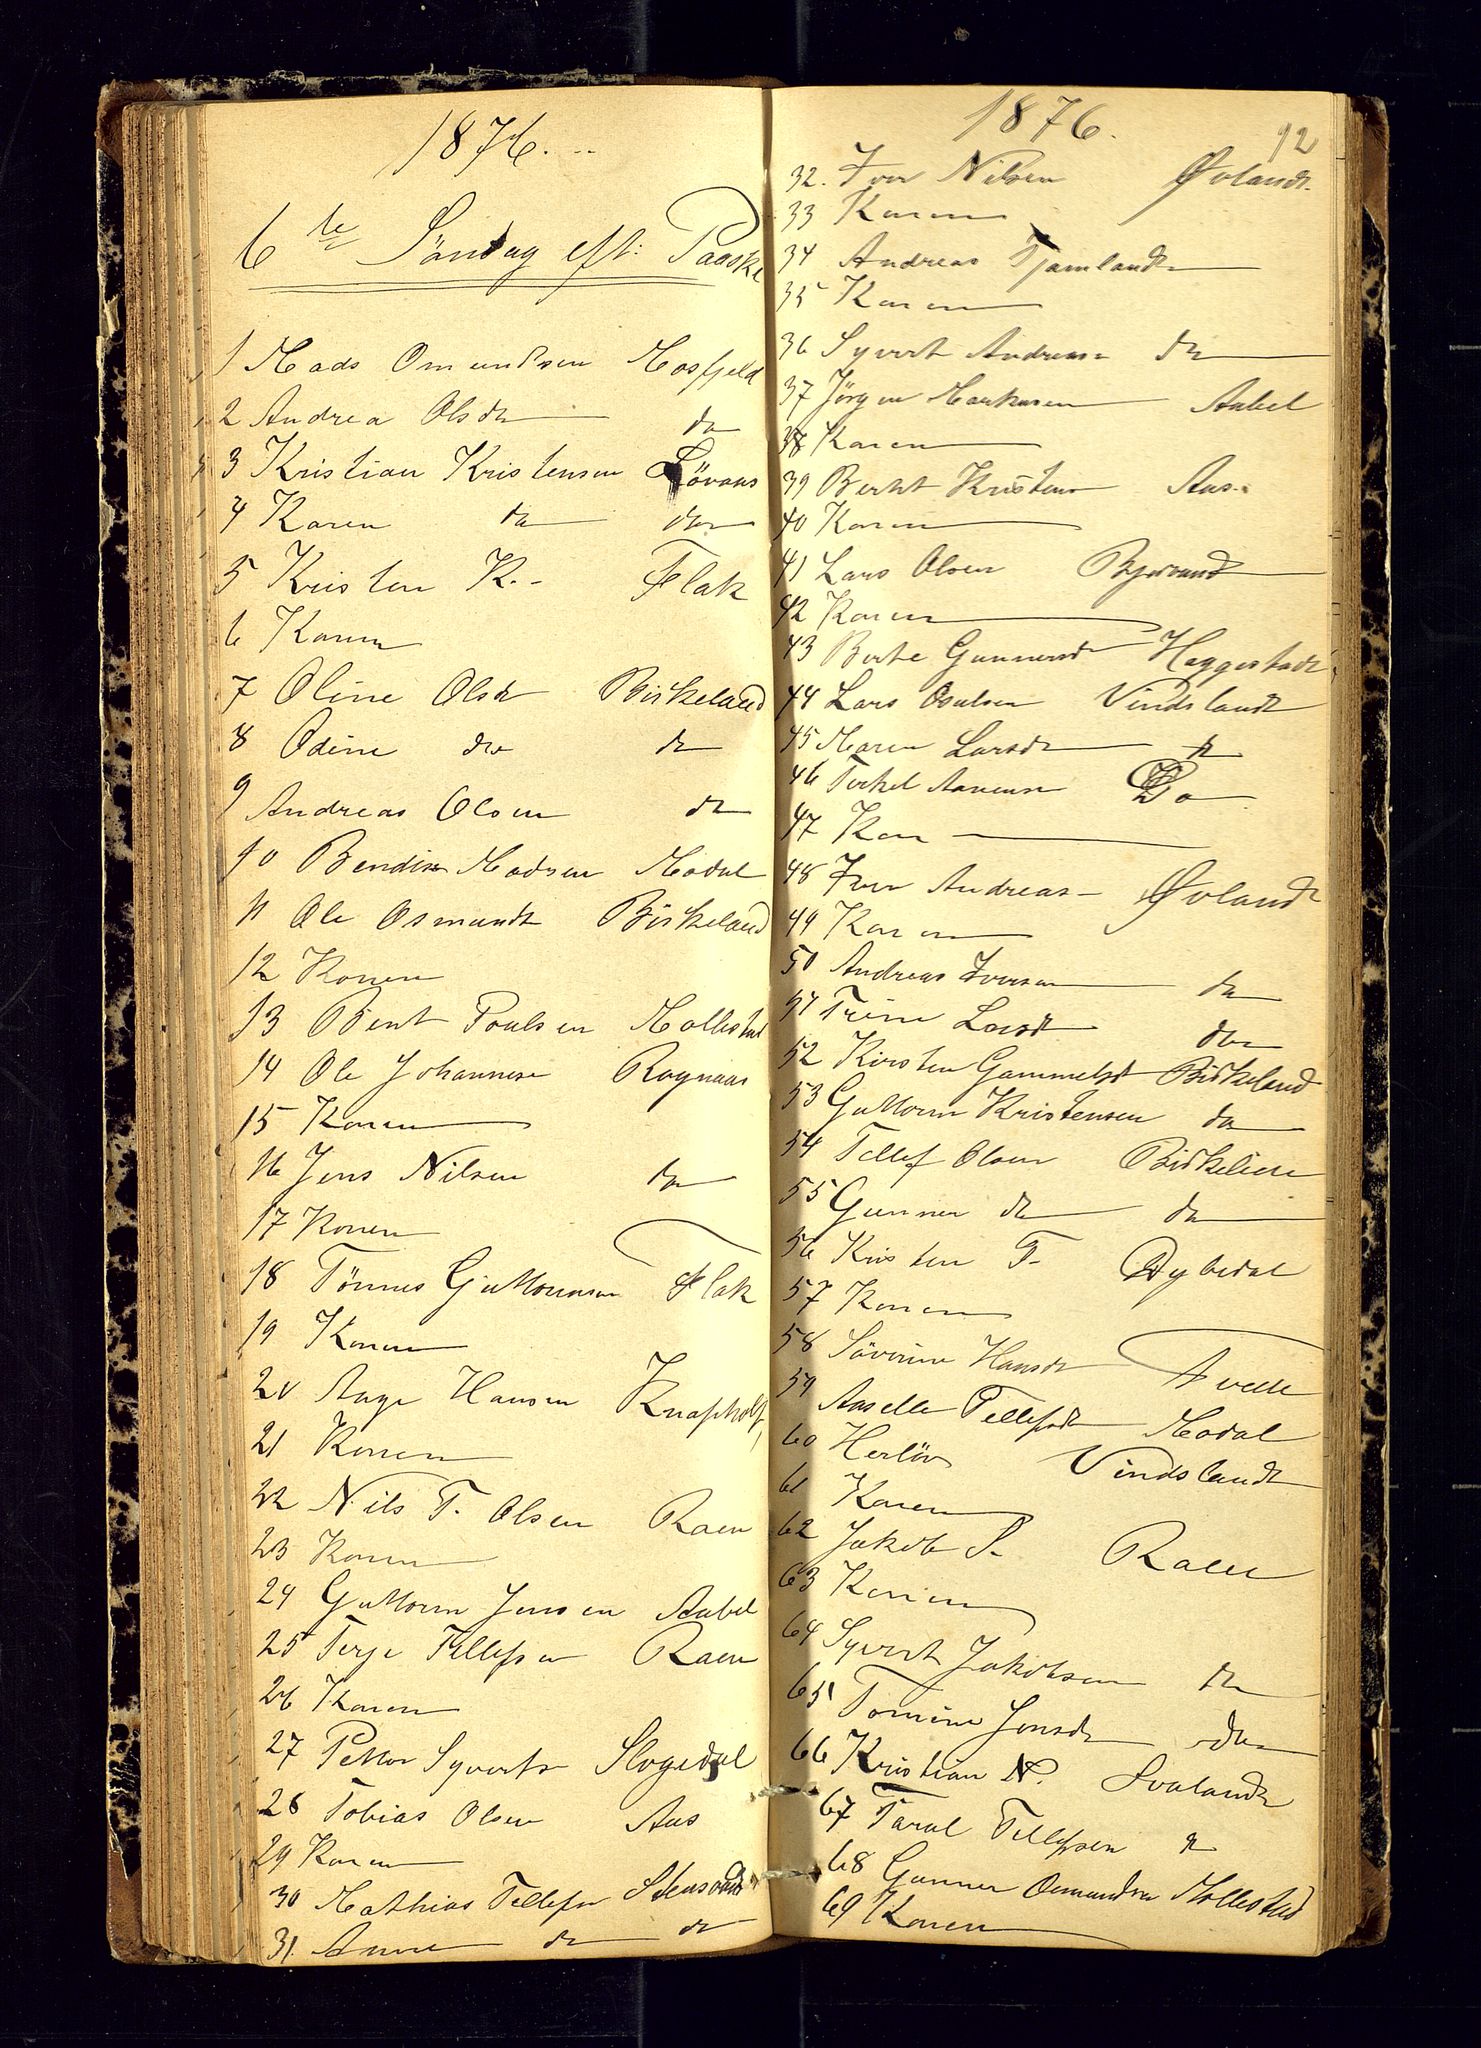 1876.
6te Söndag eft: Paaske
1 Mads Omundsen Mosfjeld
2 Andrea Olsdr do
3 Kristian Kristensen Lövaas
4 Karen do do
5 Kristen K. Flak
6 Konen
7 Oline Olsdr Birkeland
8 Odine do do
9 Andreas Olsen do
10 Bendix Madsen Modal
11 Ole Osmundr Birkeland
12 Konen
13 Bent Poulsen Mollestad
14 Ole Johannese Rognaas
15 Konen
16 Jens Nilsen do
17 Konen
18 Tönnes Guttormsen Flak
19 Konen
20 Aage Hansen
21 Konen
22 Nils T. Olsen Raen
23 Konen
24 Guttorm Jensen Aabel
25 Terje Tellefsen Raen
26 Konen
27 Petter Syverts Slogedal
28 Tobias Olsen Aas
29 Konen
30 Mathias Tellefsn Stensvand
31. Anne do do
1876.
92
32. Iver Nilsen Övlandr
33 Konen
34 Andreas Tjomlandr
35 Konen
36 Syvert Andreas do
37 Jörgen Markusen Aabel
38 Konen
39 Berht Kristens Aas
40 Konen
41 Lars Olsen Bjorvandr
42 Konen
43 Berte Gunnersdr Heggestadr
44 Lars Osulsen Vindslandr
45 Maren Larsdr do
46 Terkel Aanense Do
47 Kon
48 Iver Andreas Övlandr
49 Konen
50 Andreas Iversen do
51 Trine Larsdr do
52 Kirsten Gammelsdr Birkeland
53 Guttorm Kristensen do
54 Tellef Olsen Birkelien
55 Gunner do do
56 Kristen T. Dybedal
57 Konen
58 Söverine Hansdr Tvede
59 Aaselle Tellefsdr Modal
60 Herlöv Vindslandr
61 Konen
62 Jakob S. Raen
63 Konen
64 Syvert Jakobsen do
65 Tomine Jensdr do
66 Kristian N. Svalandr
67 Taral Tellefsen do
68 Gunner Omundsen Mollestad
69 Konen